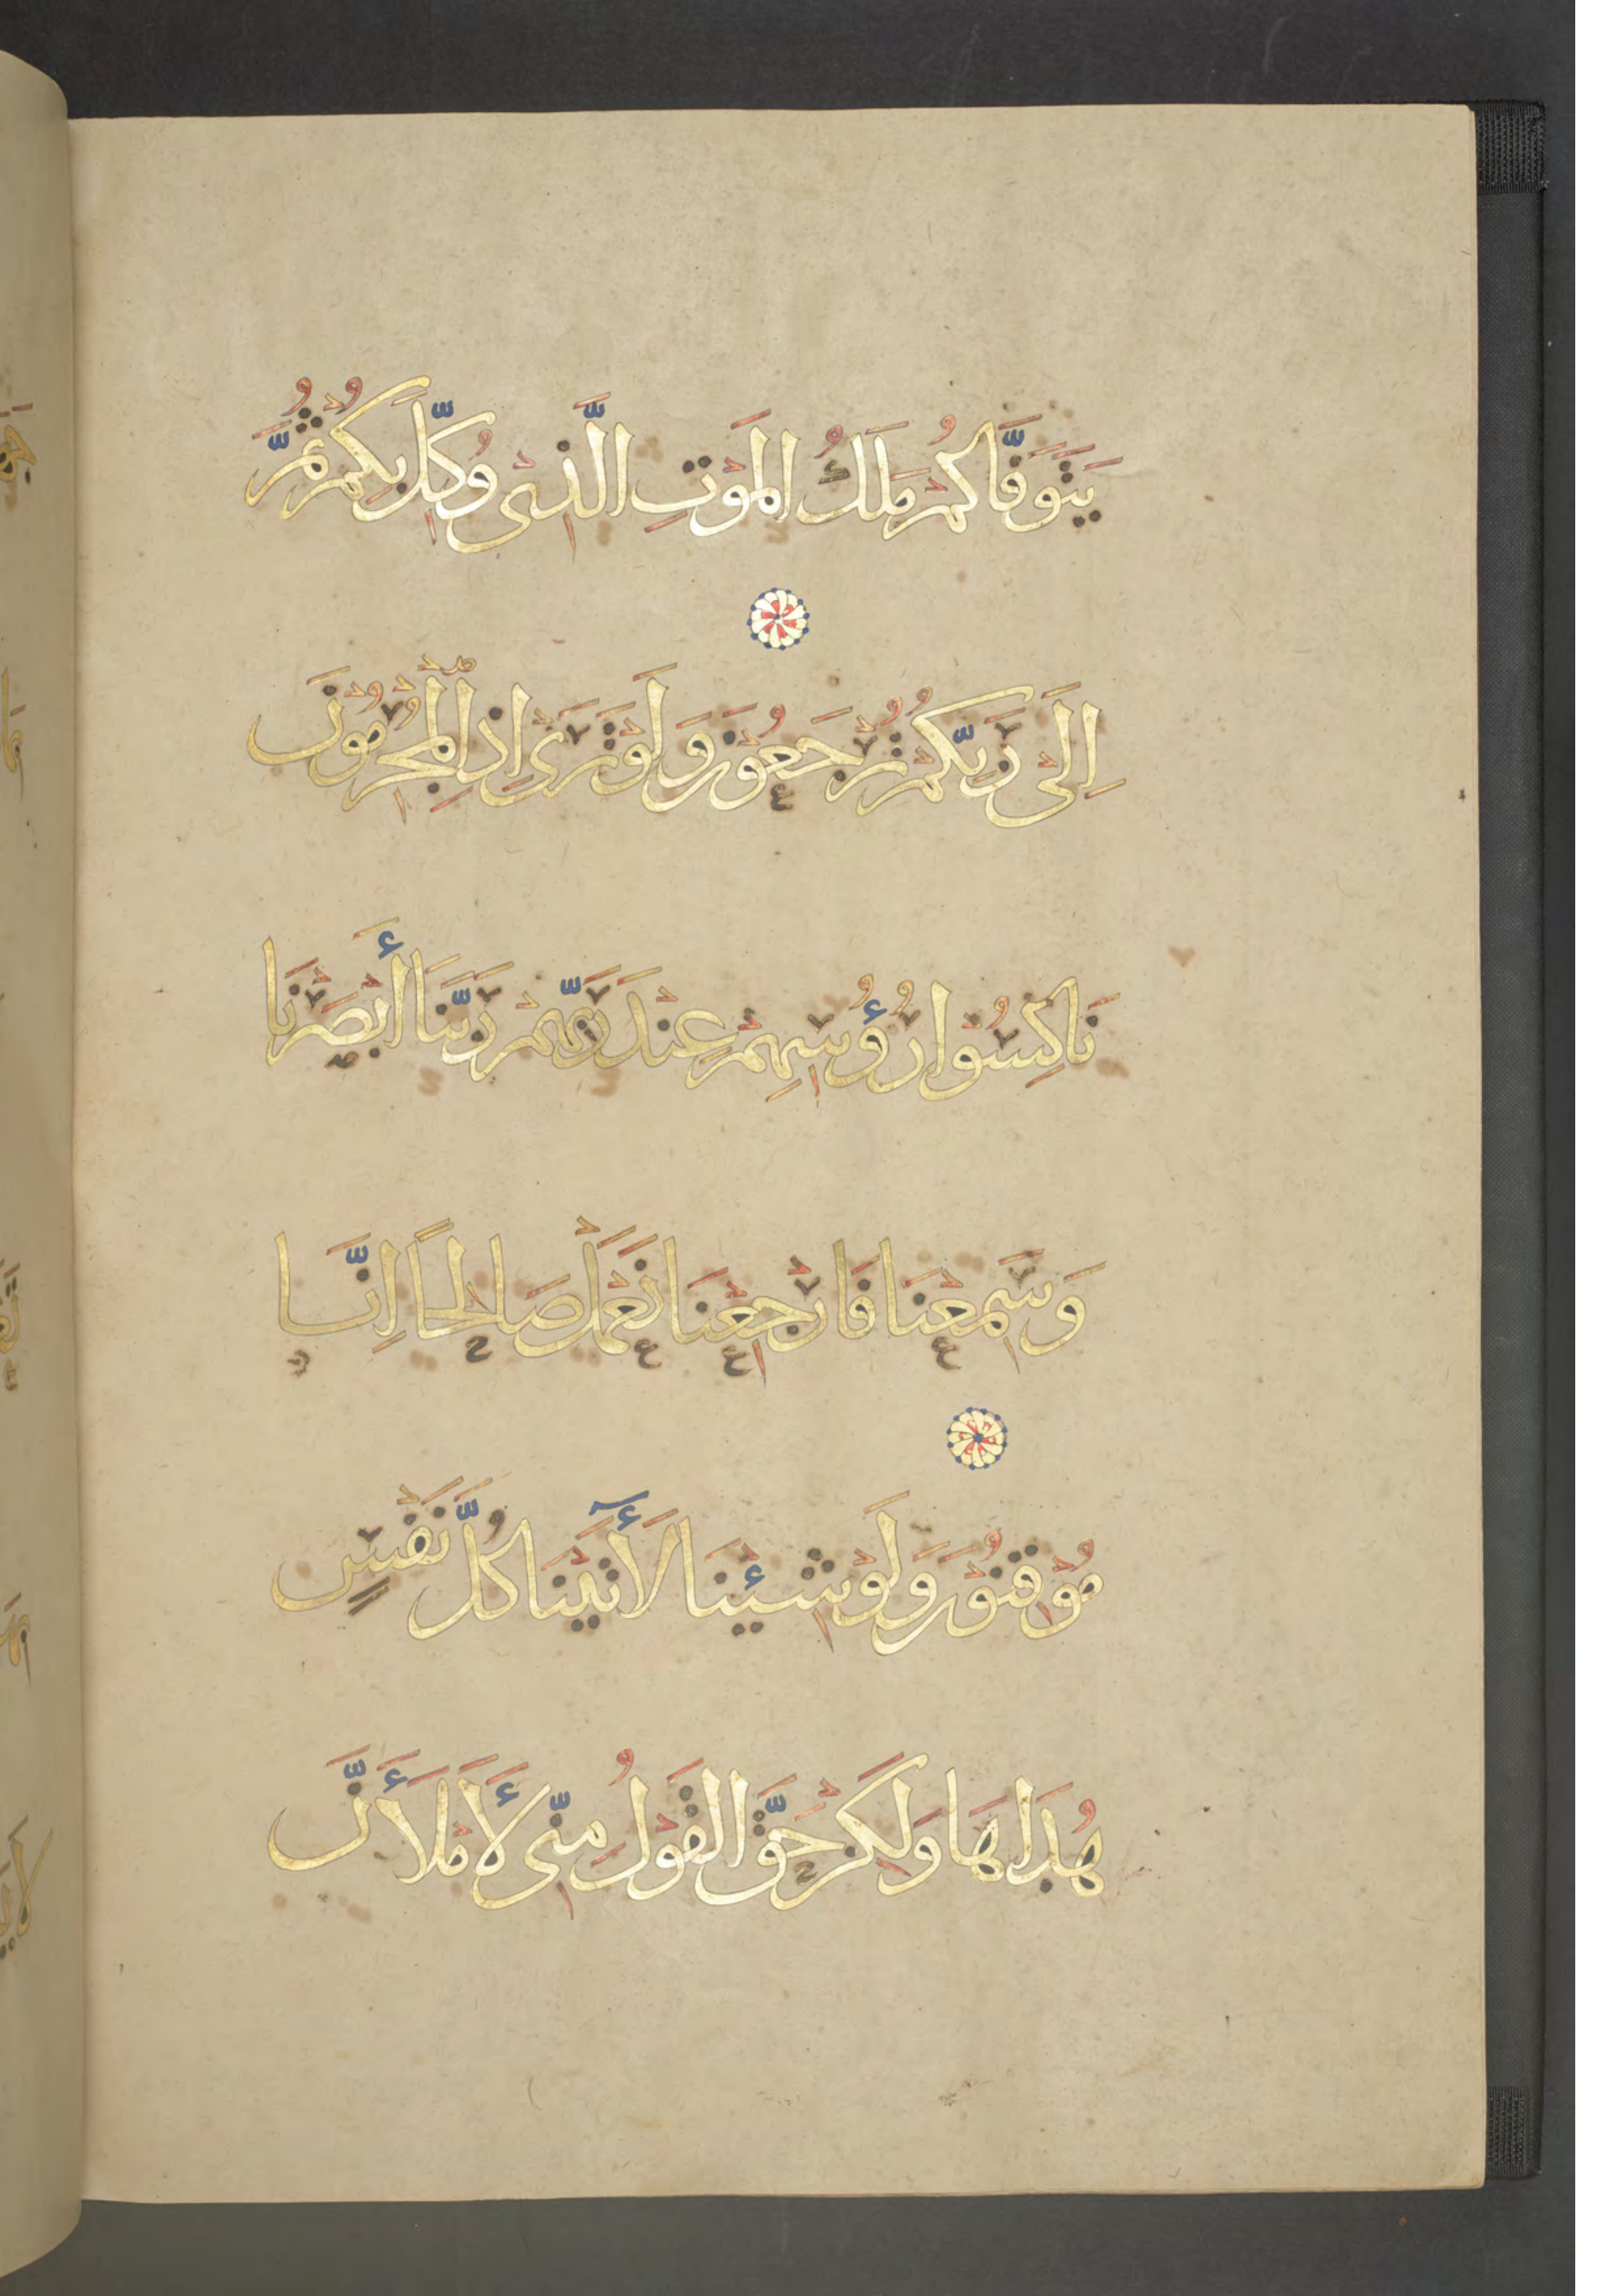 يَتَوَفَّاكُمْ مَلَكُ الْمَوْتِ الَّذِىْ وُكِّلَ بِكُمْ ثُمَّ
اِلَىْ رَبِّكُمْ تُرْجَعُوْنَ وَلَوْ تَرَىْ اِذِ الْمُجْرِمُوْنَ
نَاكِسُوْا رُؤُسِهِمْ عِنْدَ رَبِّهِمْ رَبَّنَا أَبْصَرْنَا
وَسَمِعْنَا فَارْجِعْنَا نَعْمَلْ صَالِحًا اِنَّا
مُوْقِنُوْنَ وَلَوْ شِئْنَا لَأٓتَيْنَا كُلَّ نَفْسٍ
هُدَاهَا وَلَكِنْ حَقَّ الْقَوْلُ مِنِّى لَأَمْلَأَنَّ